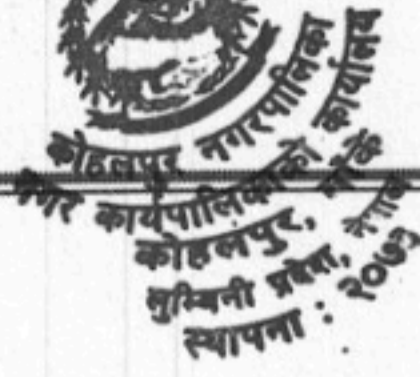 कोहलपुर नगरपालिका
नगर कार्यपालिकाको कार्यालय
कोहलपुर, बाँके
लुम्बिनी प्रदेश, नेपाल
स्थापना : २०७३